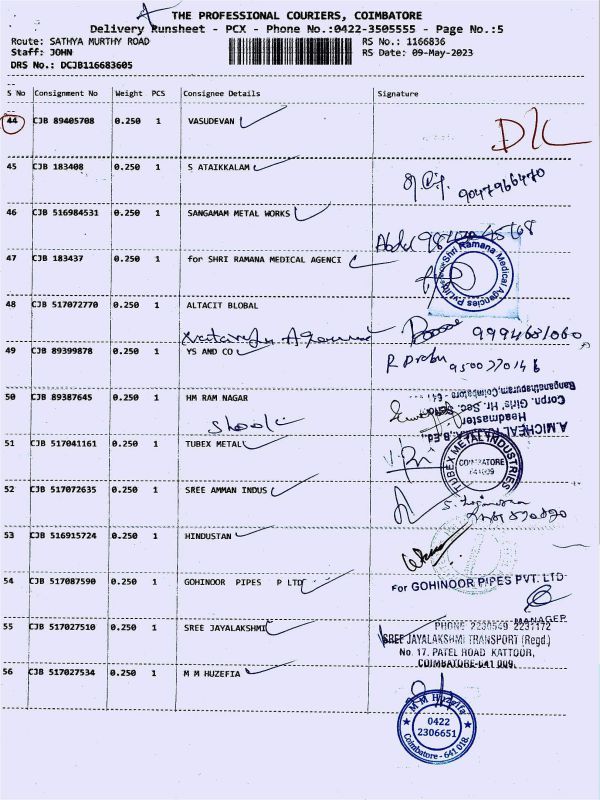 THE PROFESSIONAL COURIERS, COIMBATORE
Delivery Runsheet - PCX - Phone No.:0422-3505555 - Page No.:5
Route: SATHYA MURTHY ROAD RS No.: 1166836
Staff: JOHN RS Date: 09-May-2023
DRS No.: DCJB116683605
S No Consignment No Weight PCS Consignee Details Signature
44 CJB 89405708 0.250 1 VASUDEVAN
D/L
45 CJB 183408 0.250 1 S ATAIKKALAM
9047966470
46 CJB 516984531 0.250 1 SANGAMAM METAL WORKS
Abdul
47 CJB 183437 0.250 1 for SHRI RAMANA MEDICAL AGENCI
Shri Ramana Medical Agencies Pvt Ltd
48 CJB 517072770 0.250 1 ALTACIT BLOBAL
9994681060
49 CJB 89399878 0.250 1 YS AND CO
R Prabu
50 CJB 89387645 0.250 1 HM RAM NAGAR
A.MICHEAL
Headmaster
Corpn. Girls' Hr. Sec. School
Ranganathapuram, Coimbatore - 641
51 CJB 517041161 0.250 1 TUBEX METAL
TUBEX METAL INDUSTRIES
COIMBATORE
641 009
52 CJB 517072635 0.250 1 SREE AMMAN INDUS
53 CJB 516915724 0.250 1 HINDUSTAN
54 CJB 517087590 0.250 1 GOHINOOR PIPES P LTD
For GOHINOOR PIPES PVT. LTD
MANAGER
55 CJB 517027510 0.250 1 SREE JAYALAKSHMI
PHONE 2230549 2237172
SREE JAYALAKSHMI TRANSPORT (Regd.)
No. 17, PATEL ROAD KATTOOR,
COIMBATORE-641 009.
56 CJB 517027534 0.250 1 M M HUZEFIA
M M Huzeifa
0422
2306651
Coimbatore - 641 018.